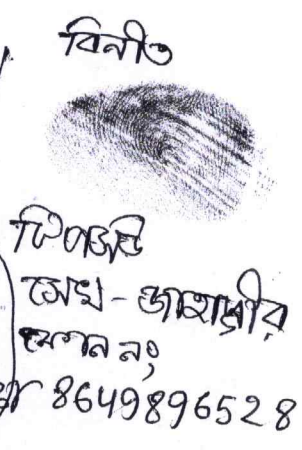 বিনীত
টিপসহি
সেখ - জাহাঙ্গীর
ফোন নং
8649896528